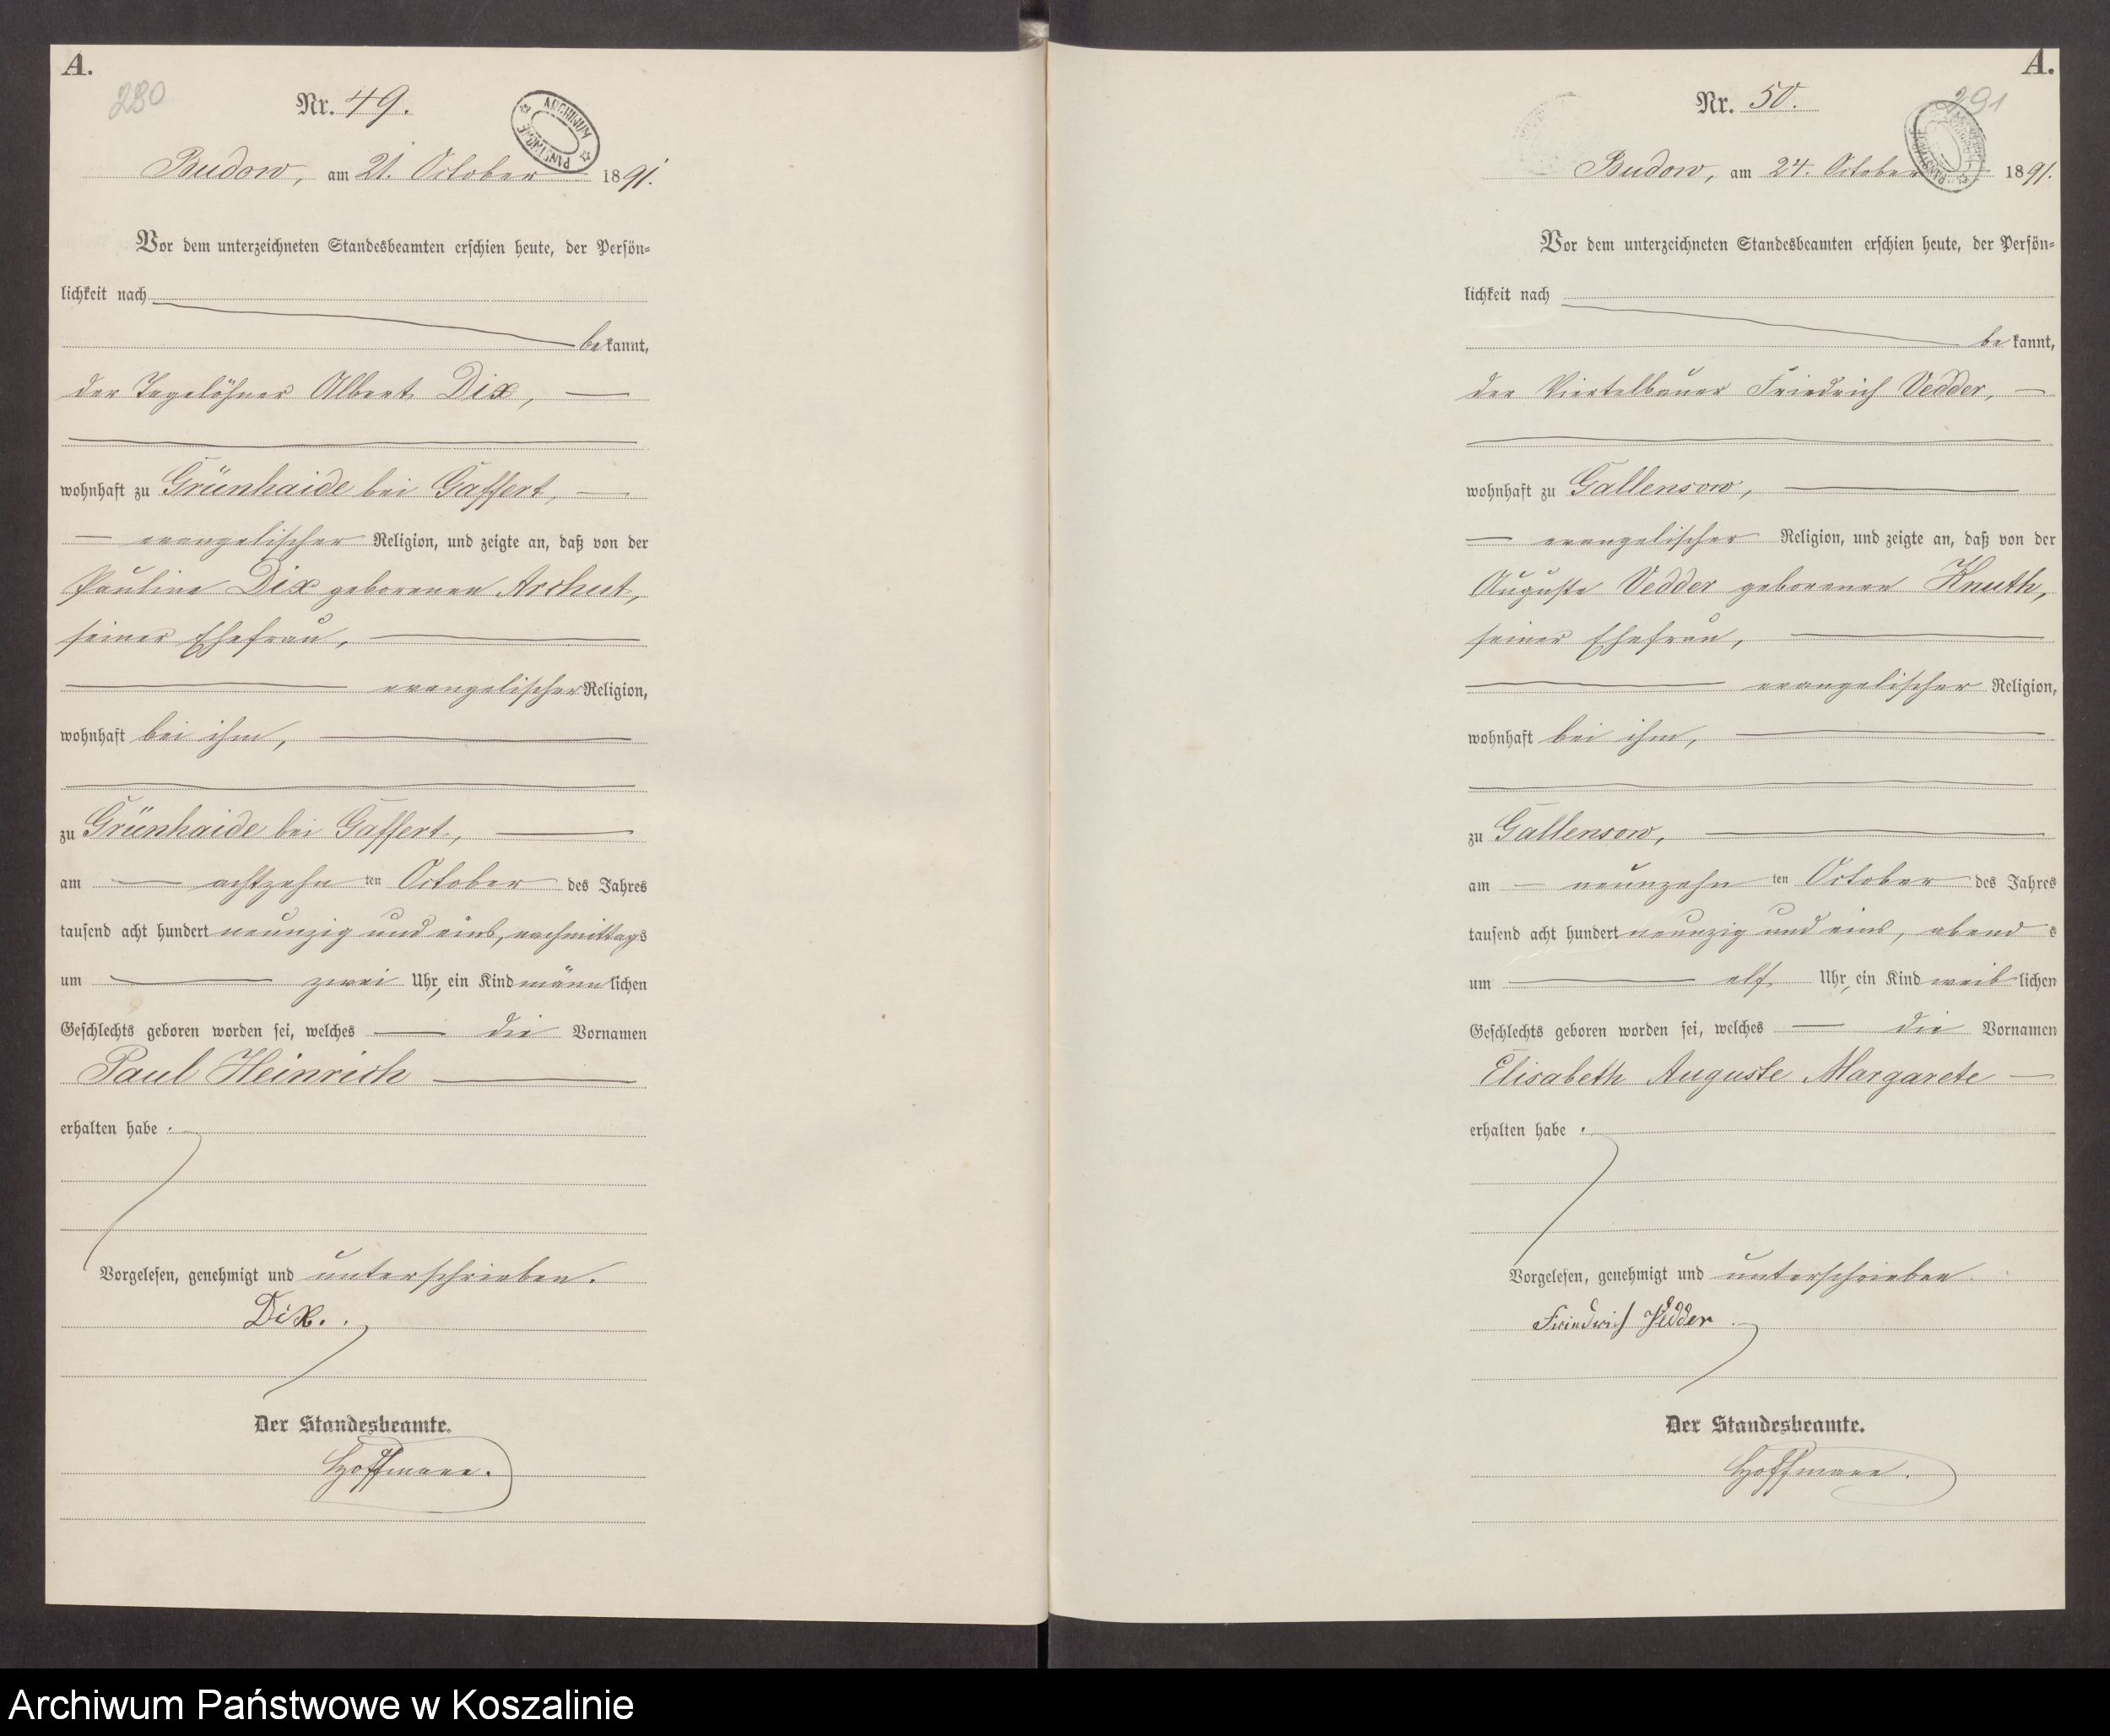 A.
280
Nr. 49.
ARCHIWUM PAŃSTWOWE
Budow, am 21. October 1891.
Vor dem unterzeichneten Standesbeamten erschien heute, der Persön-
lichkeit nach
bekannt,
der Tagelöhner Albert Dix,
wohnhaft zu Grünhaide bei Gaffert,
evangelischer Religion, und zeigte an, daß von der
Pauline Dix geborenen Archut,
seiner Ehefrau,
evangelischer Religion,
wohnhaft bei ihm,
zu Grünhaide bei Gaffert,
am achtzehn ten October des Jahres
tausend acht hundert neunzig und eins, nachmittags
um zwei Uhr, ein Kind männlichen
Geschlechts geboren worden sei, welches die Vornamen
Paul Heinrich
erhalten habe.
Vorgelesen, genehmigt und unterschrieben.
Dix.
Der Standesbeamte.
Hoffmann.
A.
291
Nr. 50.
Budow, am 24. October 1891.
Vor dem unterzeichneten Standesbeamten erschien heute, der Persön-
lichkeit nach
bekannt,
der Viertelbauer Friedrich Vedder,
wohnhaft zu Gallensow,
evangelischer Religion, und zeigte an, daß von der
Auguste Vedder geborenen Knuth,
seiner Ehefrau,
evangelischer Religion,
wohnhaft bei ihm,
zu Gallensow,
am neunzehn ten October des Jahres
tausend acht hundert neunzig und eins, abend s
um elf Uhr, ein Kind weiblichen
Geschlechts geboren worden sei, welches die Vornamen
Elisabeth Auguste Margarete
erhalten habe.
Vorgelesen, genehmigt und unterschrieben.
Friedrich Vedder.
Der Standesbeamte.
Hoffmann.
Archiwum Państwowe w Koszalinie